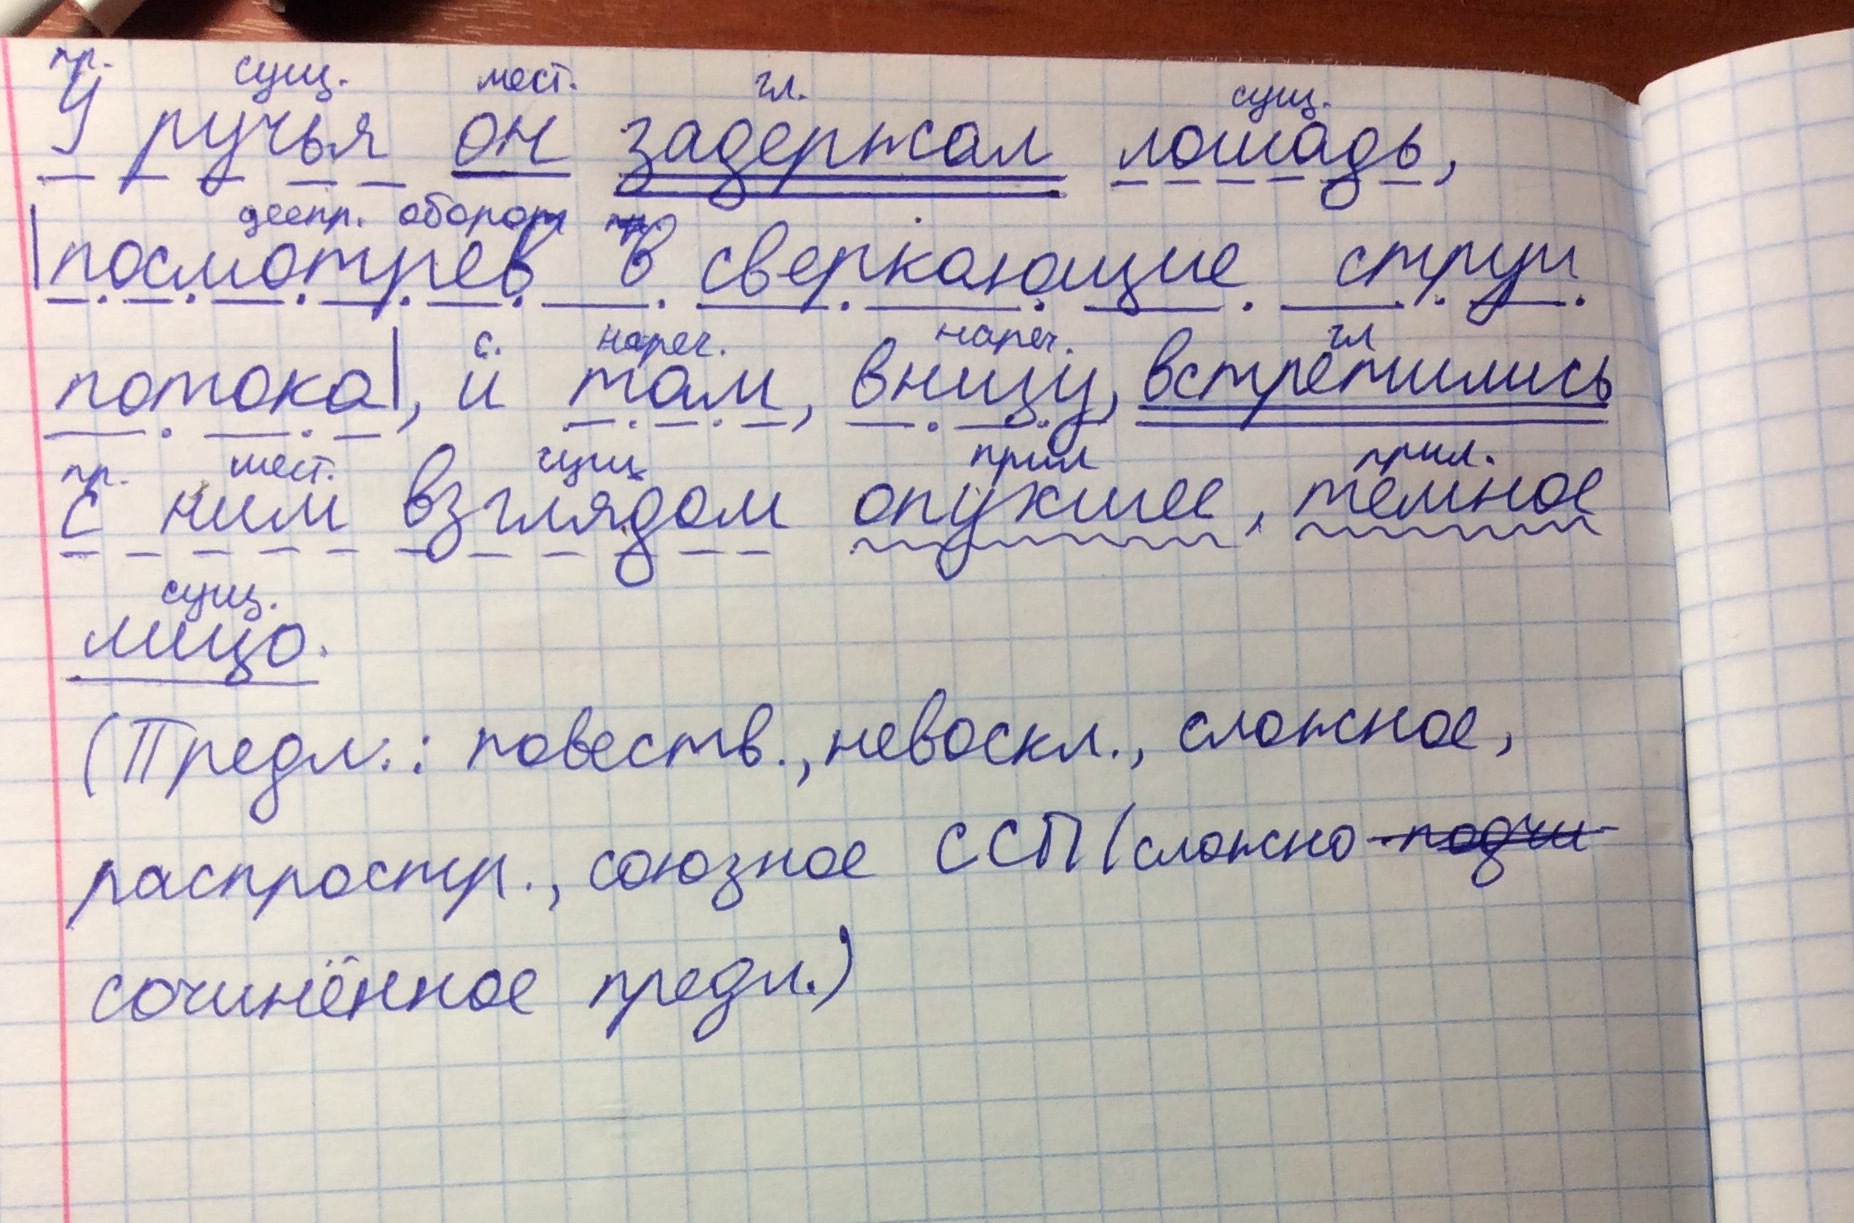 пр. сущ. мест. гл. сущ.
У ручья он задержал лошадь,
деепр. оборот пр.
посмотрев в сверкающие струи
с. нареч. нареч. гл
потока, и там, внизу, встретились
пр. мест. сущ прил прил.
с ним взглядом опухшее, темное
сущ.
лицо.
(Предл.: повеств., невоскл., сложное,
распростр., союзное ССП (сложно подчи
сочинённое предл.)